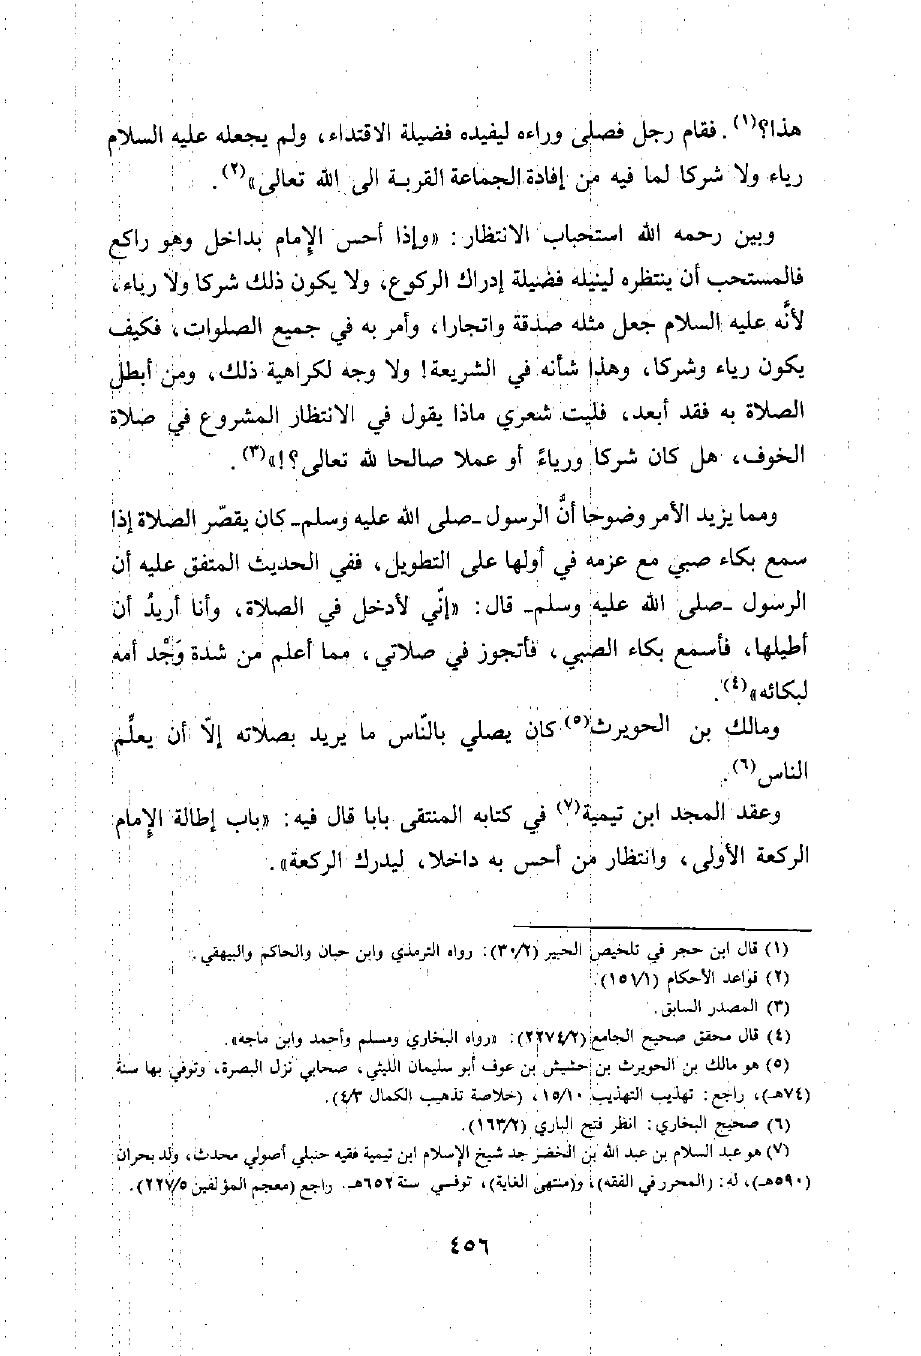 هذا؟(١). فقام رجل فصلى وراءه ليفيده فضيلة الاقتداء، ولم يجعله عليه السلام
رياء ولا شركا لما فيه من إفادة الجماعة القربة الى الله تعالى»(٢).
وبين رحمه الله استحباب الانتظار: «وإذا أحس الإمام بداخل وهو راكع
فالمستحب أن ينتظره لينيله فضيلة إدراك الركوع، ولا يكون ذلك شركا ولا رياء،
لأنَّه عليه السلام جعل مثله صدقة واتجارا، وأمر به في جميع الصلوات، فكيف
يكون رياء وشركا، وهذا شأنه في الشريعة! ولا وجه لكراهية ذلك، ومن أبطل
الصلاة به فقد أبعد، فليت شعري ماذا يقول في الانتظار المشروع في صلاة
الخوف، هل كان شركا ورياءً أو عملا صالحا لله تعالى؟!»(٣).
ومما يزيد الأمر وضوحا أنَّ الرسول ـصلى الله عليه وسلمـ كان يقصّر الصلاة إذا
سمع بكاء صبي مع عزمه في أولها على التطويل، ففي الحديث المتفق عليه أن
الرسول ـصلى الله عليه وسلمـ قال: «إنّي لأدخل في الصلاة، وأنا أريدُ أن
أطيلها، فأسمع بكاء الصبي، فأتجوز في صلاتي، مما أعلم من شدة وَجْد أمه
لبكائه»(٤).
ومالك بن الحويرث(٥) كان يصلي بالنّاس ما يريد بصلاته إلّا أن يعلِّم
الناس(٦).
وعقد المجد ابن تيمية(٧) في كتابه المنتقى بابا قال فيه: «باب إطالة الإمام
الركعة الأولى، وانتظار من أحس به داخلا، ليدرك الركعة».
(١) قال ابن حجر في تلخيص الحبير (٣٠/٢): رواه الترمذي وابن حبان والحاكم والبيهقي.
(٢) قواعد الأحكام (١٥١/١).
(٣) المصدر السابق.
(٤) قال محقق صحيح الجامع (٢٢٧٤/٢): «رواه البخاري ومسلم وأحمد وابن ماجه».
(٥) هو مالك بن الحويرث بن حشيش بن عوف أبو سليمان الليثي، صحابي نزل البصرة، وتوفي بها سنة
(٧٤هـ)، راجع: تهذيب التهذيب ١٥/١٠، (خلاصة تذهيب الكمال ٤/٣).
(٦) صحيح البخاري: انظر فتح الباري (١٦٣/٢).
(٧) هو عبد السلام بن عبد الله بن الخضر جد شيخ الإسلام ابن تيمية فقيه حنبلي أصولي محدث، ولد بحران
(٥٩٠هـ)، له: (المحرر في الفقه)، و(منتهى الغاية)، توفي سنة ٦٥٢هـ. راجع (معجم المؤلفين ٢٢٧/٥).
٤٥٦